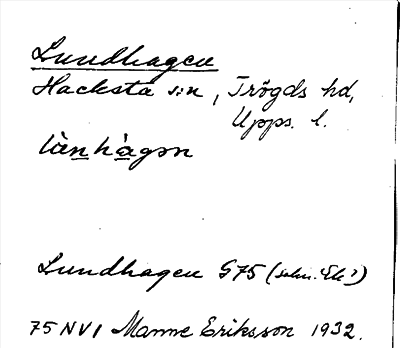 Lundhagen
Hacksta sn, Trögds hd,
Upps. l.
lùnhàgən
Lundhagen G75
75 NV1 Manne Eriksson 1932.